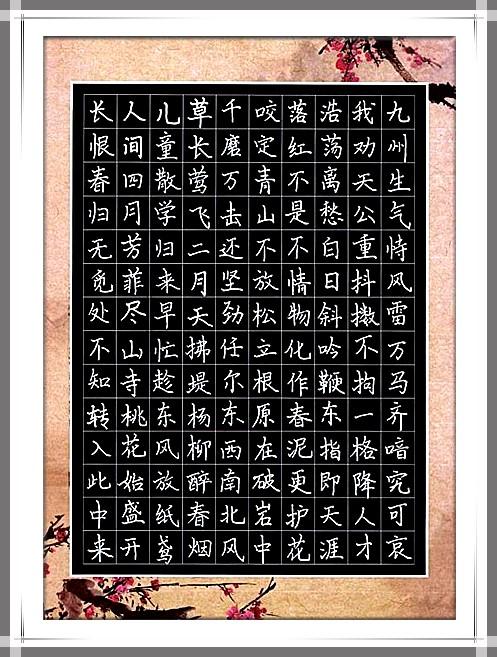 九州生气恃风雷万马齐喑究可哀
我劝天公重抖擞不拘一格降人才
浩荡离愁白日斜吟鞭东指即天涯
落红不是情物化作春泥更护花
咬定青山不放松立根原在破岩中
千磨万击还坚劲任尔东西南北风
草长莺飞二月天拂堤杨柳醉春烟
儿童散学归来早忙趁东风放纸鸢
人间四月芳菲尽山寺桃花始盛开
长恨春归无觅处不知转入此中来